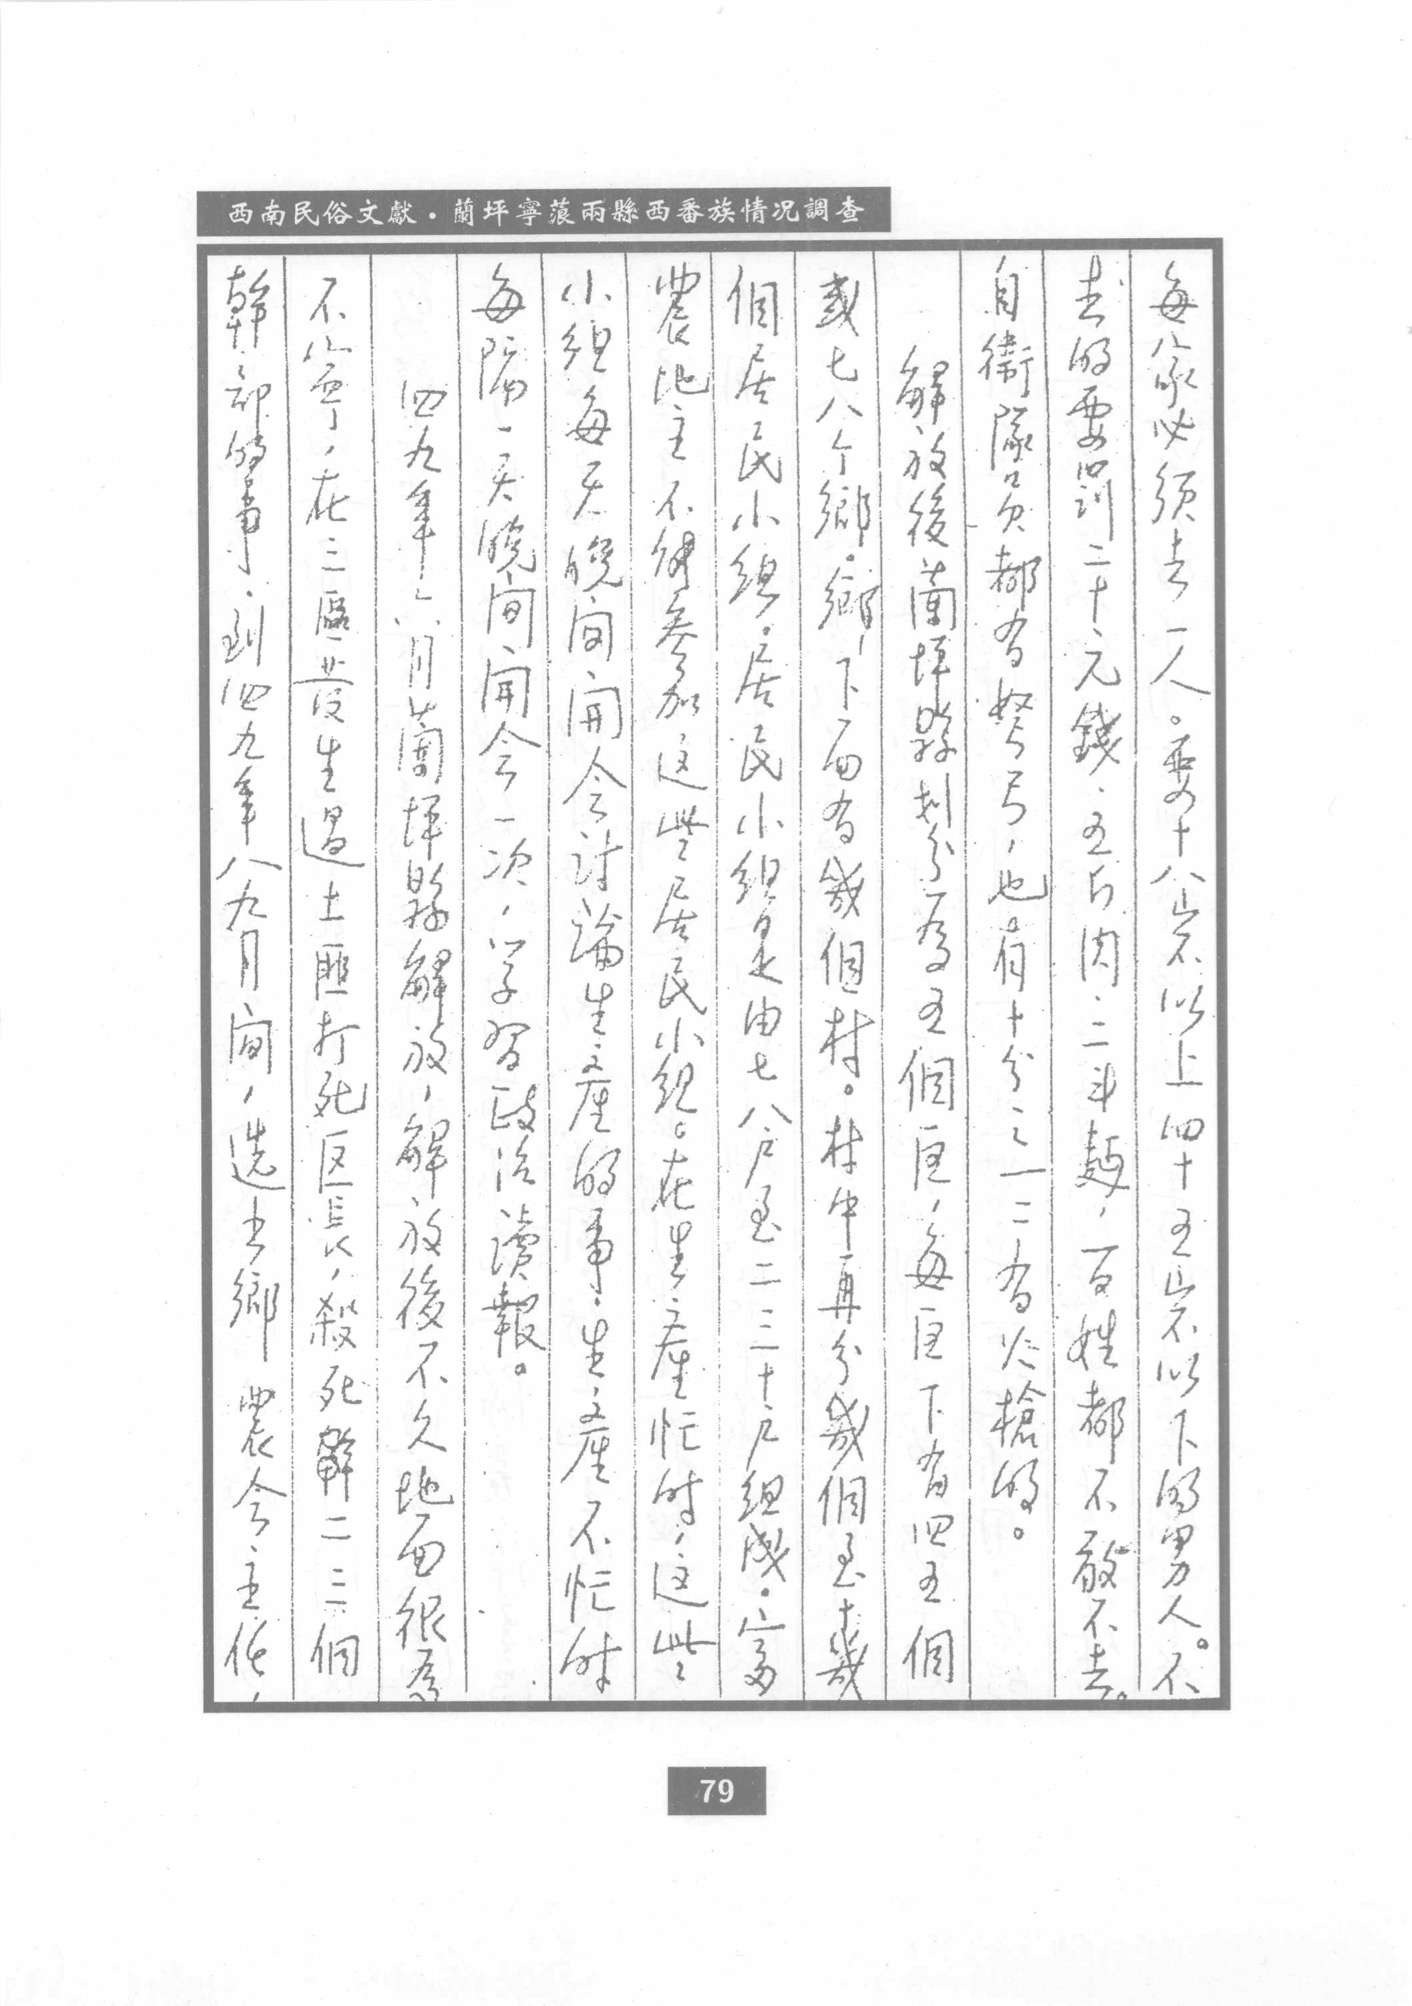 西南民俗文獻·蘭坪寧蒗兩縣西番族情况調查
每家必須去一人。要十八岁以上四十五岁以下的男人。不
去的要罰二十元錢、五斤肉、二斗麵，百姓都不敢不去。
自衛隊員都有弩弓，也有十分之一二有火槍的。
解放後蘭坪縣划分為五個区，每区下有四五個
或七八个鄉。鄉下面有幾個村。村中再分幾個至十幾
個居民小組。居民小組是由七八户至二三十户組成。富
農地主不能參加这些居民小組。在生產忙時，这些
小組每天晚间開会討論生產的事，生產不忙時
每隔一天晚间開会一次，学習政治讀報。
四九年六月蘭坪縣解放，解放後不久地面很為
不寧，在三區發生過土匪打死区長，殺死幹二三個
幹部的事。到四九年八九月间，选出鄉 農会主任，
79